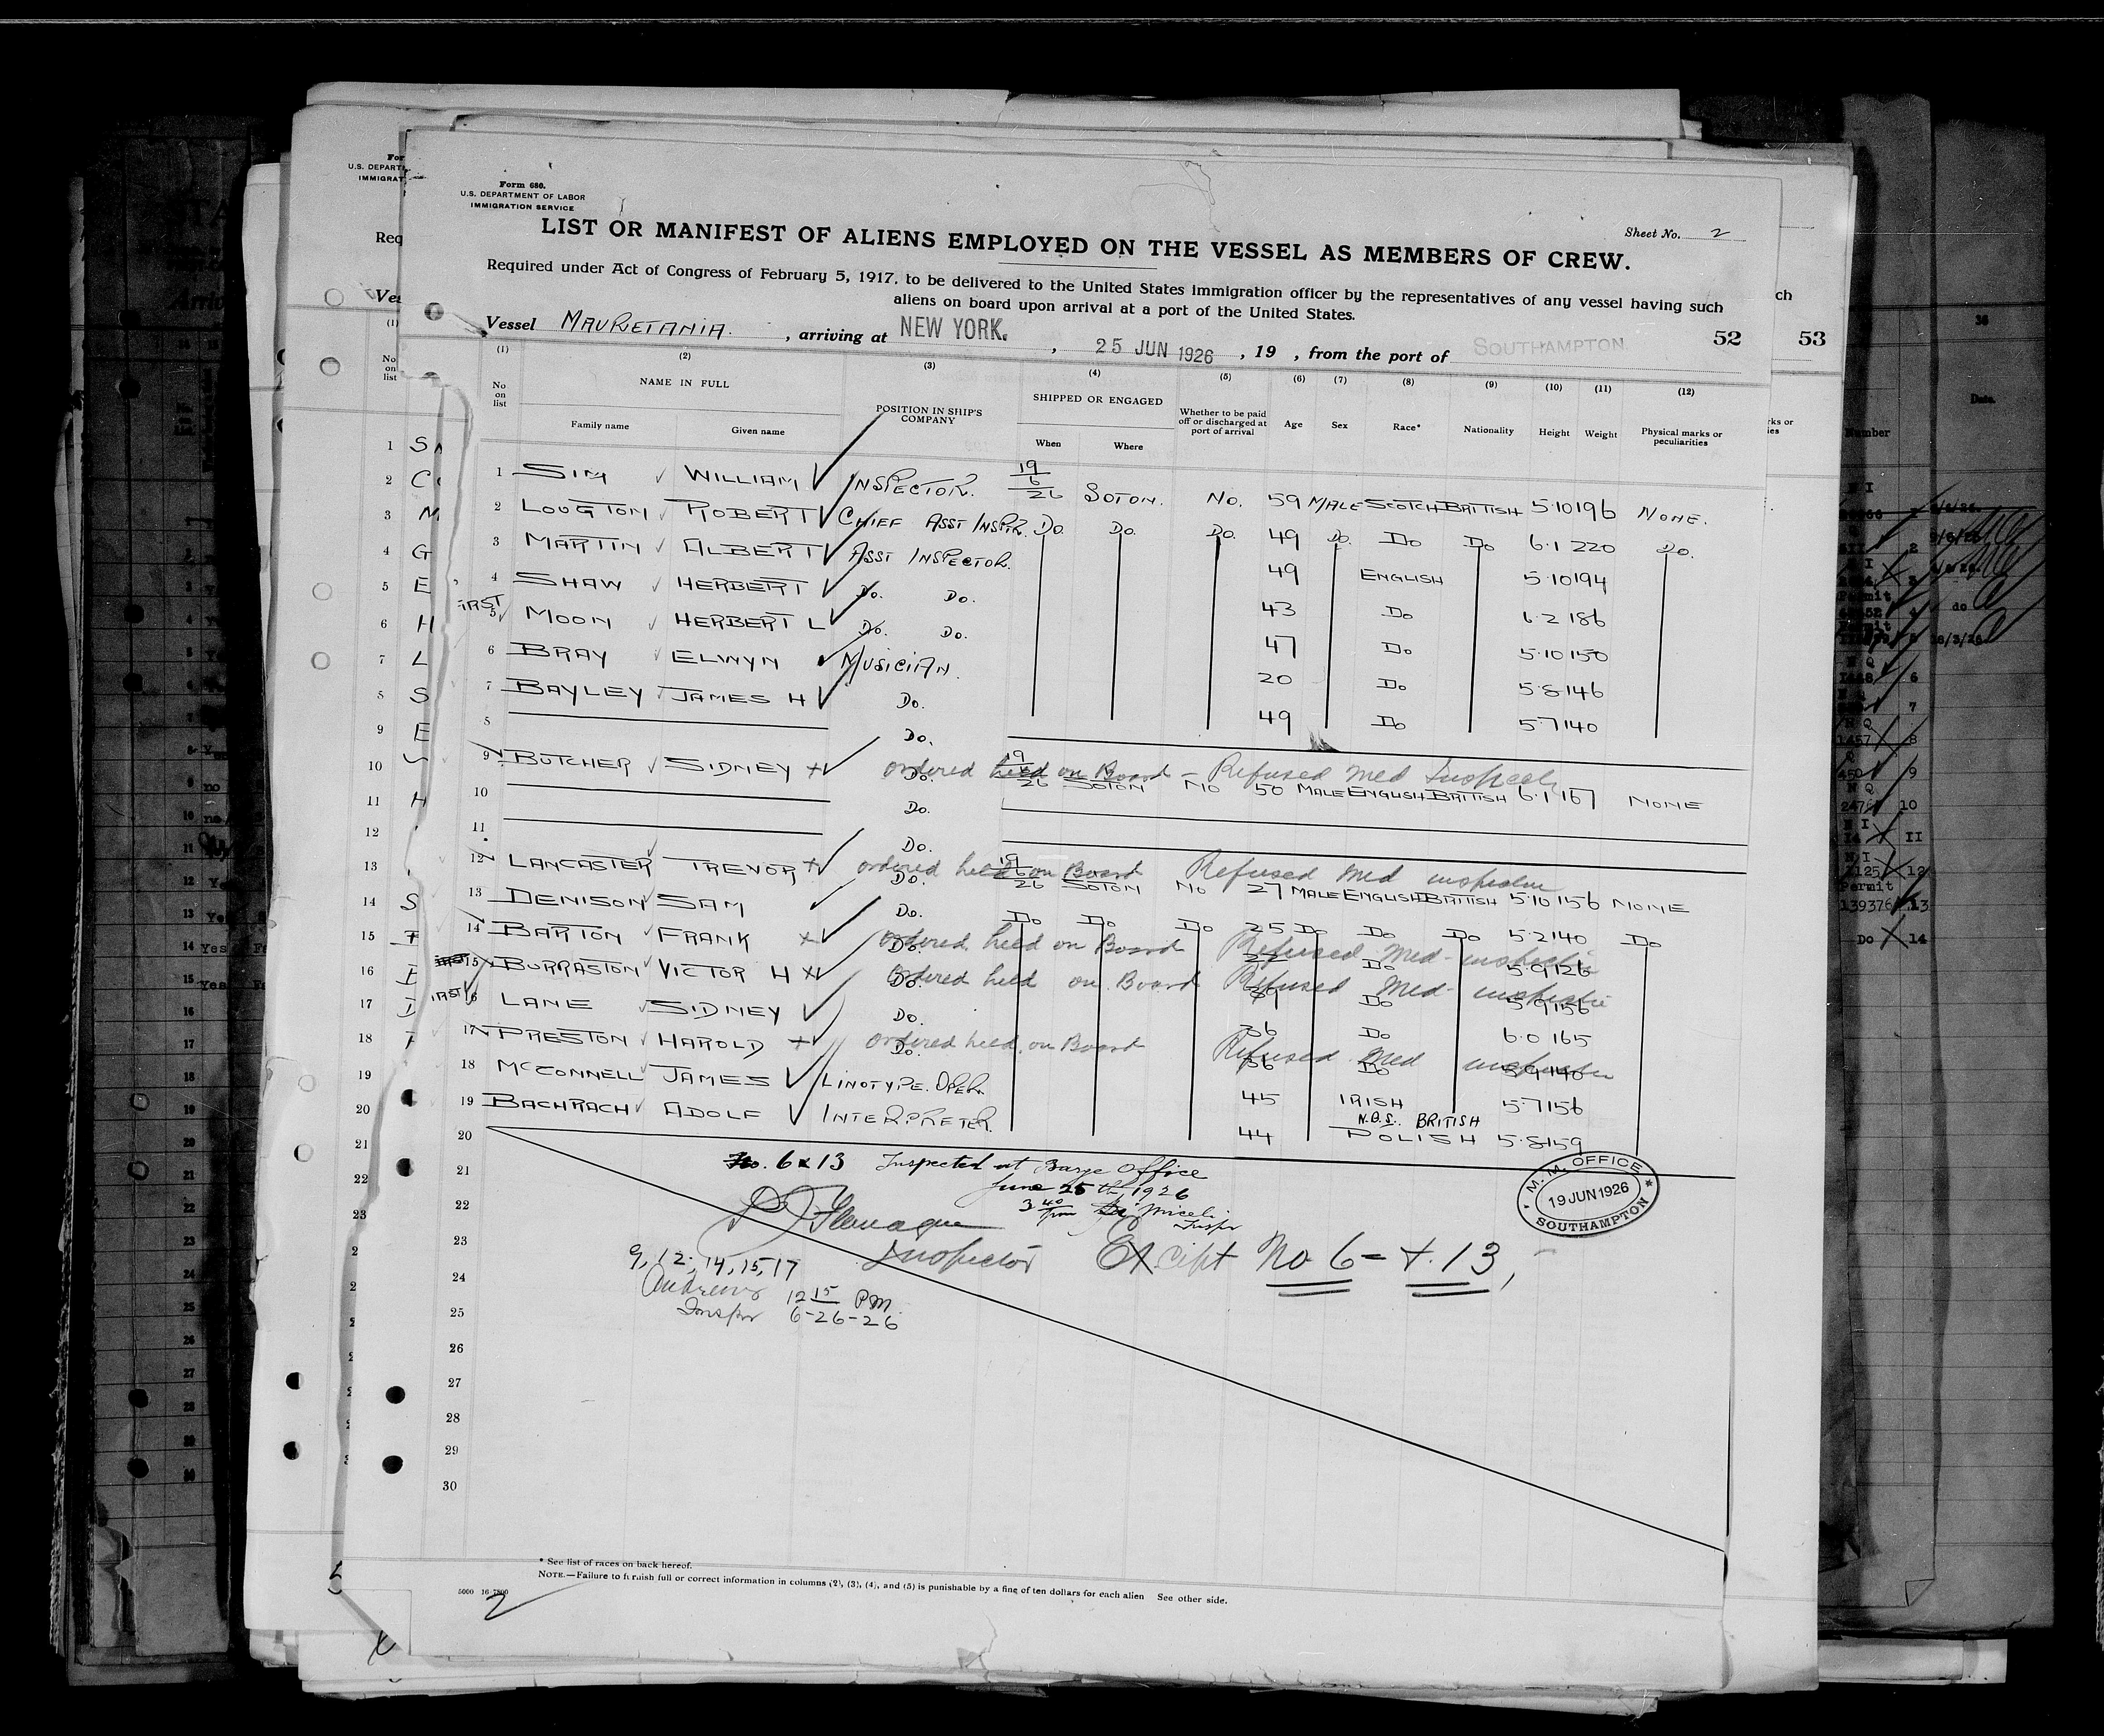 Form 680.
U.S. DEPARTMENT OF LABOR
IMMIGRATION SERVICE
Sheet No. 2
LIST OR MANIFEST OF ALIENS EMPLOYED ON THE VESSEL AS MEMBERS OF CREW.
Required under Act of Congress of February 5, 1917, to be delivered to the United States immigration officer by the representatives of any vessel having such
aliens on board upon arrival at a port of the United States.
Vessel MAURETANIA. , arriving at NEW YORK. , 25 JUN 1926 , 19 , from the port of SOUTHAMPTON 52 53
(1) (2) (3) (4) (5) (6) (7) (8) (9) (10) (11) (12)
No on list NAME IN FULL Family name Given name POSITION IN SHIP'S COMPANY SHIPPED OR ENGAGED When Where Whether to be paid off or discharged at port of arrival Age Sex Race* Nationality Height Weight Physical marks or peculiarities
1 SIM WILLIAM INSPECTOR. 19/6/26 SOTON. NO. 59 MALE SCOTCH BRITISH 5·10 196 NONE.
2 LOUGTON ROBERT CHIEF ASST INSPTR. DO. DO. DO. 49 DO. DO DO 6·1 220 DO.
3 MARTIN ALBERT ASST INSPECTOR. 49 ENGLISH 5·10 194
4 SHAW HERBERT DO. DO. 43 DO 6·2 186
FIRST 5 MOON HERBERT L DO. DO. 47 DO 5·10 150
6 BRAY ELWYN MUSICIAN. 20 DO 5·8 146
7 BAYLEY JAMES H DO. 49 DO 5·7 140
8 DO.
9 BUTCHER SIDNEY + DO. 19/6/26 SOTON NO 50 MALE ENGLISH BRITISH 6·1 167 NONE
ordered held on Board - Refused Med Inspectn
10 DO.
11 DO.
12 LANCASTER TREVOR + DO. 19/6/26 SOTON NO 27 MALE ENGLISH BRITISH 5·10 156 NONE
ordered held on Board Refused Med inspection
13 DENISON SAM DO. DO DO DO 25 DO DO DO 5·2 140 DO
14 BARTON FRANK + DO. DO 5·9 126
ordered held on Board Refused Med- inspectin
15 BURRASTON VICTOR H + DO. DO 5·9 156
ordered held on Board Refused Med- inspectin
FIRST 16 LANE SIDNEY DO. 36 DO 6·0 165
17 PRESTON HAROLD + DO. 36 DO 5·9 140
ordered held on Board Refused Med inspectin
18 McCONNELL JAMES LINOTYPE. OPER. 45 IRISH 5·7 156
19 BACHRACH ADOLF INTERPRETER. 44 N.O.S. POLISH BRITISH 5·8 159
20
21
22
23
24
25
26
27
28
29
30
No. 6 & 13 Inspected at Barge Office
June 25th, 1926
3 40 pm Miceli
Inspr
Inspector
Except No 6 = + 13,
9, 12, 14, 15, 17
Andrews 12 15 PM.
Inspr 6-26-26
M. M. OFFICE
19 JUN 1926
SOUTHAMPTON
* See list of races on back hereof.
NOTE.—Failure to furnish full or correct information in columns (2), (3), (4), and (5) is punishable by a fine of ten dollars for each alien See other side.
2